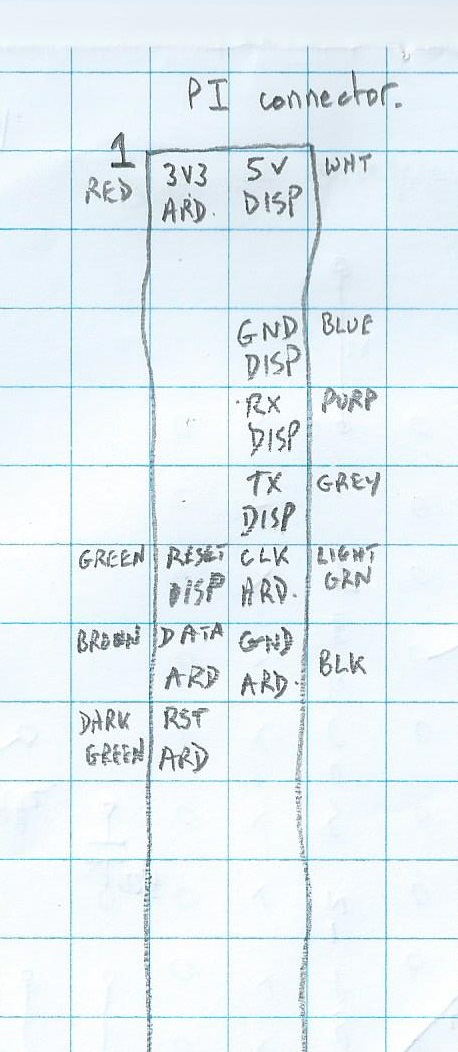 PI connector.
1
RED 3V3 5V WHT
ARD. DISP
GND BLUE
DISP
RX PURP
DISP
TX GREY
DISP
GREEN RESET CLK LIGHT
DISP ARD. GRN
BROWN DATA GND
ARD ARD. BLK
DARK RST
GREEN ARD